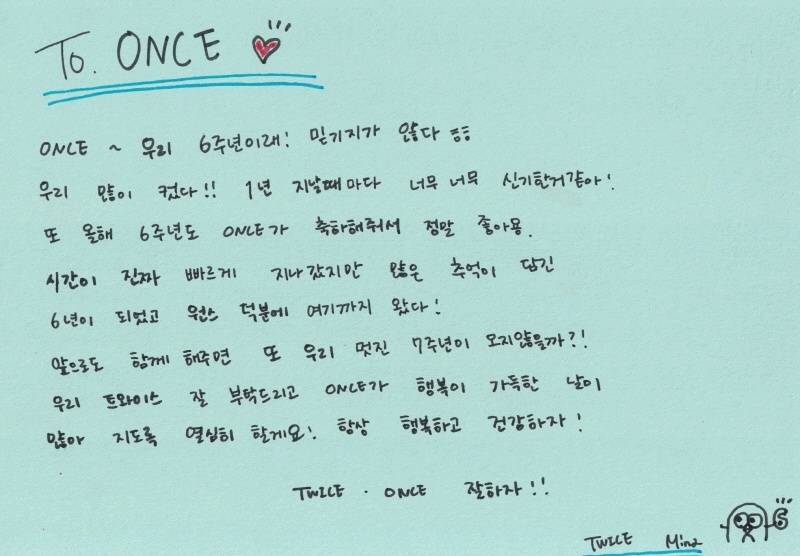 To. ONCE
ONCE ~ 우리 6주년이래! 믿기지가 않다 ㅠㅠ
우리 많이 컸다!! 1년 지날때마다 너무 너무 신기한거같아!
또 올해 6주년도 ONCE가 축하해줘서 정말 좋아용.
시간이 진짜 빠르게 지나갔지만 많은 추억이 담긴
6년이 되었고 원스 덕분에 여기까지 왔다!
앞으로도 함께 해주면 또 우리 멋진 7주년이 오지않을까?!
우리 트와이스 잘 부탁드리고 ONCE가 행복이 가득한 날이
많아 지도록 열심히 할게요! 항상 행복하고 건강하자!
TWICE · ONCE 잘하자!!
6
TWICE Mina